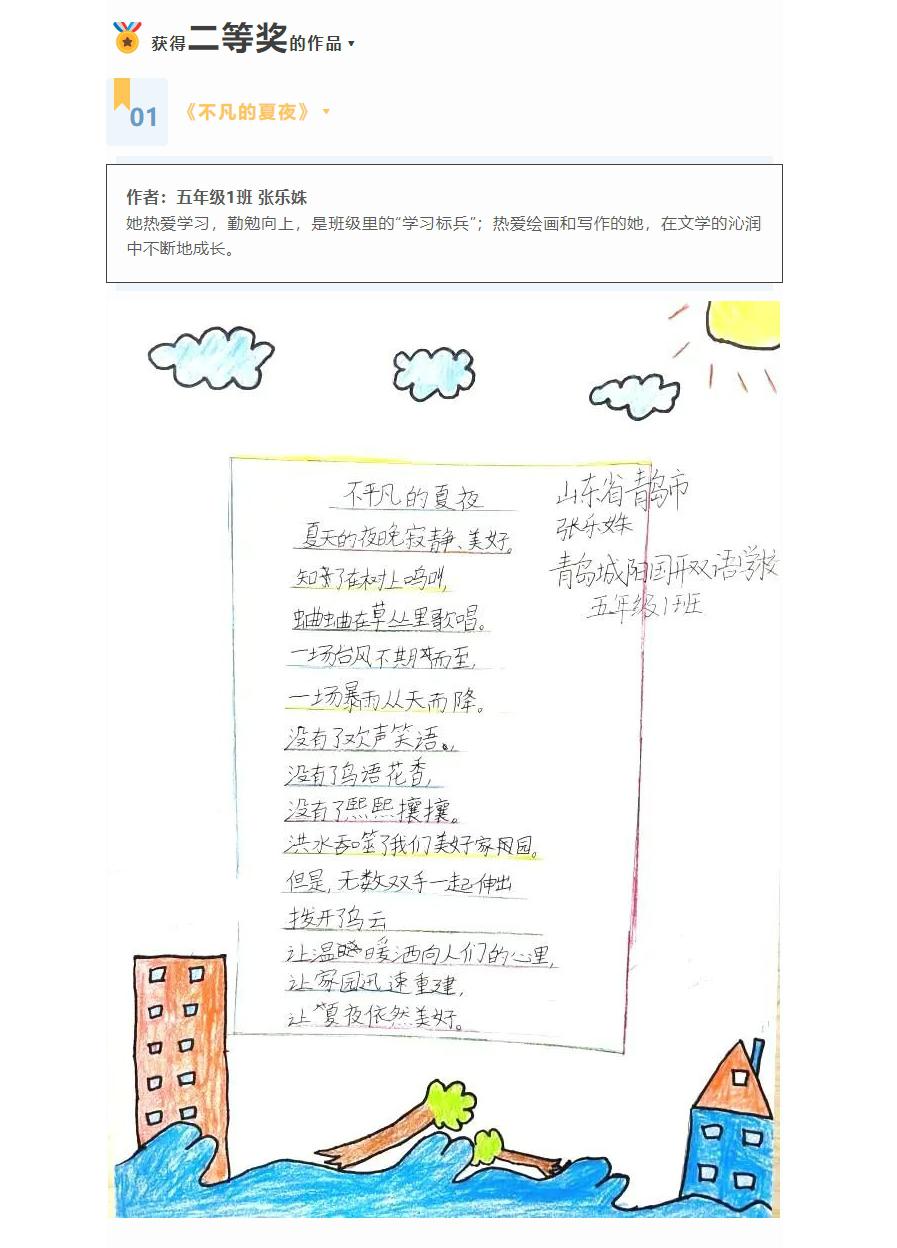 获得二等奖的作品
01
《不凡的夏夜》
作者：五年级1班 张乐姝
她热爱学习，勤勉向上，是班级里的“学习标兵”；热爱绘画和写作的她，在文学的沁润
中不断地成长。
不平凡的夏夜
山东省青岛市
夏天的夜晚寂静、美好。
张乐姝
知了在树上鸣叫,
青岛城阳国开双语学校
蛐蛐在草丛里歌唱。
五年级1班
一场台风不期而至,
一场暴雨从天而降。
没有了欢声笑语,
没有了鸟语花香,
没有了熙熙攘攘。
洪水吞噬了我们美好家园。
但是,无数双手一起伸出
拨开了乌云
让温暖洒向人们的心里,
让家园迅速重建,
让夏夜依然美好。